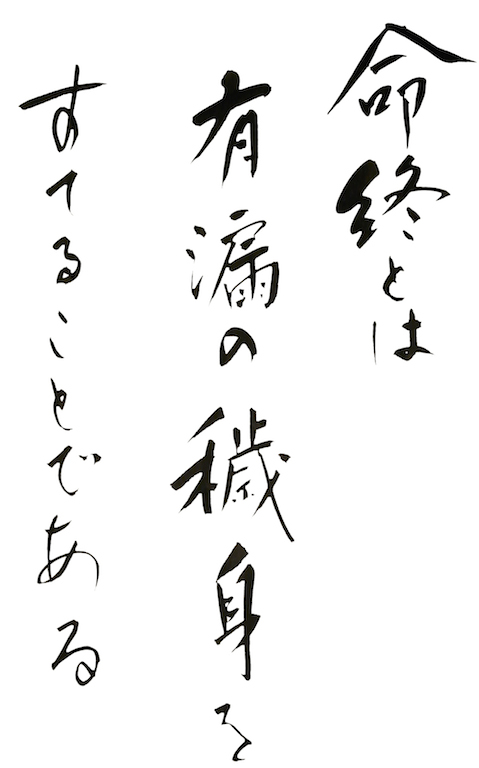 命終とは
有漏の穢身を
すてることである